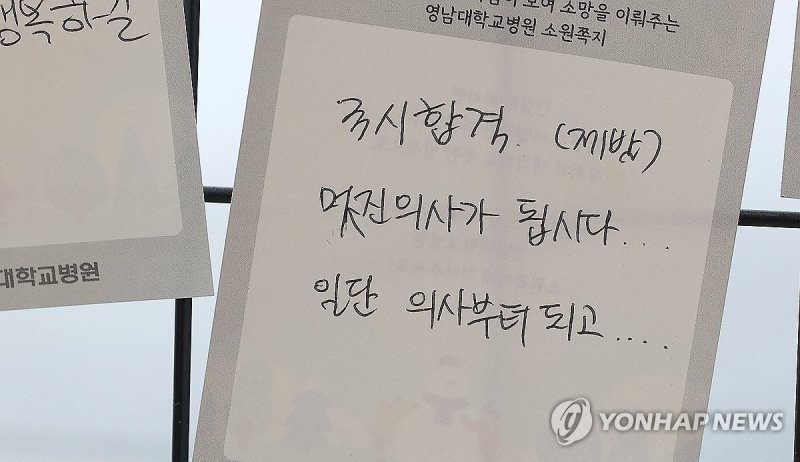 행복하길
대학교병원
모여 소망을 이뤄주는
영남대학교병원 소원쪽지
국시합격. (제발)
멋진의사가 됩시다....
일단 의사부터 되고....
YONHAPNEWS